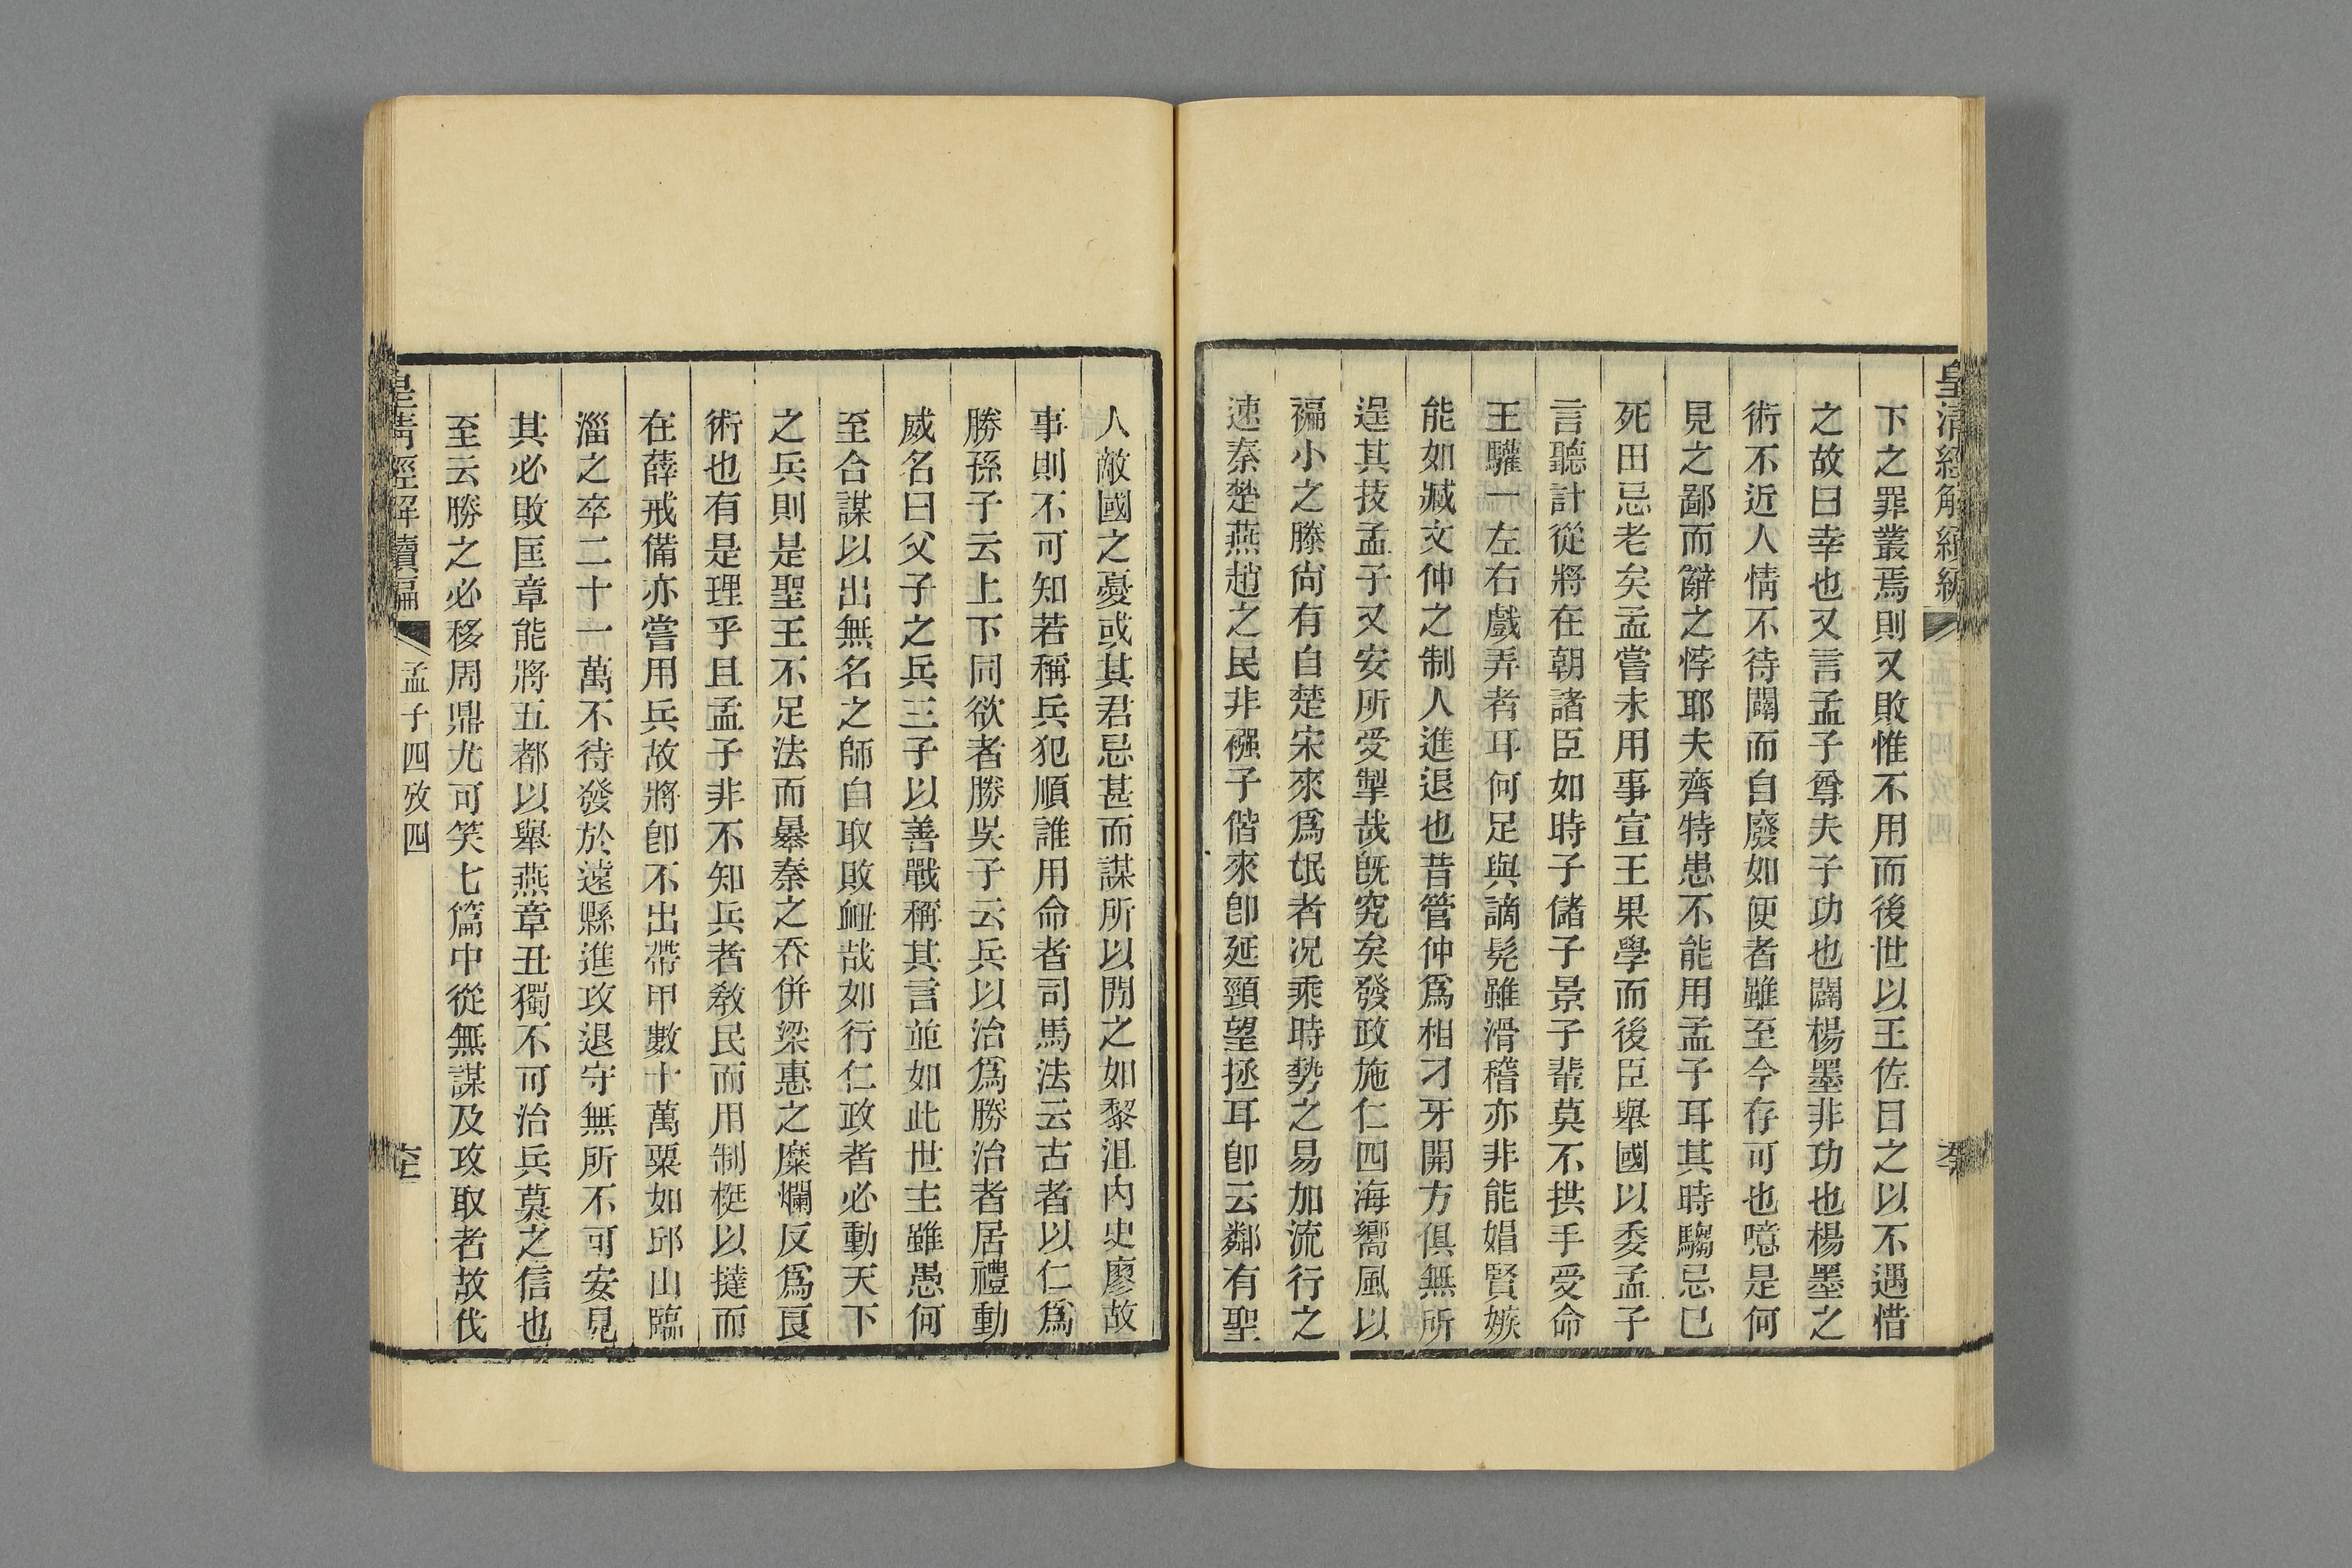 皇清經解續編
下之罪叢焉則又敗惟不用而後世以王佐目之以不遇惜
之故曰幸也又言孟子尊夫子功也闢楊墨非功也楊墨之
術不近人情不待闢而自廢如便者雖至今存可也噫是何
見之鄙而辭之悖耶夫齊特患不能用孟子耳其時騶忌已
死田忌老矣孟嘗未用事宣王果學而後臣舉國以委孟子
言聽計從將在朝諸臣如時子儲子景子輩莫不拱手受命
王驩一左右戲弄者耳何足與謫髡雖滑稽亦非能娼賢嫉
能如臧文仲之制人進退也昔管仲爲相刁牙開方俱無所
逞其技孟子又安所受掣哉旣究矣發政施仁四海嚮風以
褊小之滕尙有自楚宋來爲氓者况乘時勢之易加流行之
速秦楚燕趙之民非襁子偕來卽延頸望拯耳卽云鄰有聖
人敵國之憂或其君忌甚而謀所以閒之如黎沮內史廖故
事則不可知若稱兵犯順誰用命者司馬法云古者以仁爲
勝孫子云上下同欲者勝吳子云兵以治爲勝治者居禮動
威名曰父子之兵三子以善戰稱其言並如此世主雖愚何
至合謀以出無名之師自取敗衄哉如行仁政者必動天下
之兵則是聖王不足法而暴秦之吞併梁惠之糜爛反爲良
術也有是理乎且孟子非不知兵者敎民而用制梃以撻而
在薛戒備亦嘗用兵故將卽不出帶甲數十萬粟如邱山臨
淄之卒二十一萬不待發於遠縣進攻退守無所不可安見
其必敗匡章能將五都以舉燕章丑獨不可治兵莫之信也
至云勝之必移周鼎尤可笑七篇中從無謀及攻取者故伐
皇清經解續編
孟子四攷四